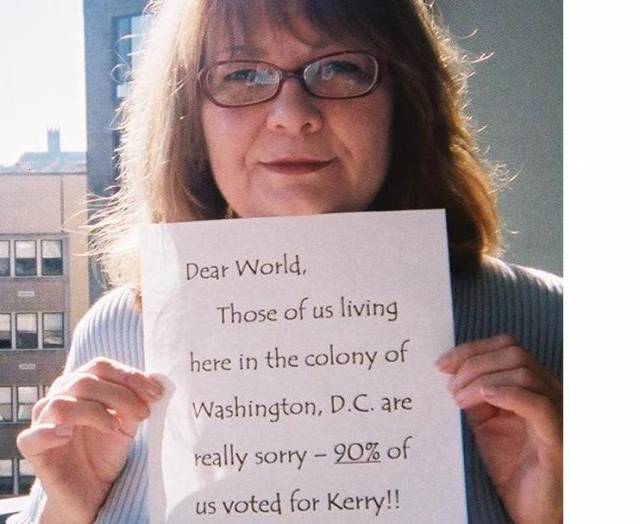 Dear World,
Those of us living
here in the colony of
Washington, D.C. are
really sorry – 90% of
us voted for Kerry!!